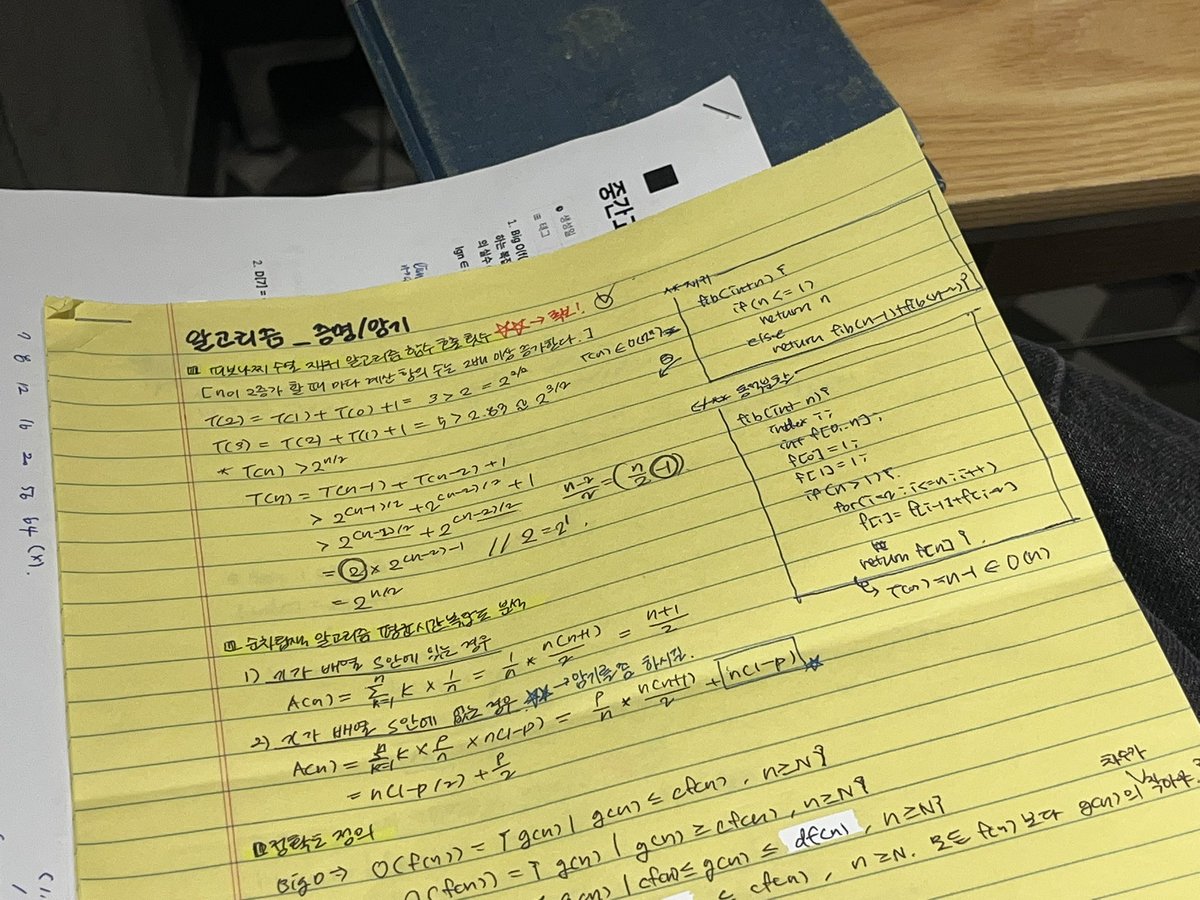 중간고
생성일
태그
1. Big O
하는
의 실수
lgn ∈
2. D[7] =
7 8 12 16 2 56 64 (x).
알고리즘 _ 증명/암기
피보나찌 수열 재귀 알고리즘 함수 호출 횟수 ☆☆→
[n이 2증가 할 때 마다 계산 항의 수는 2배 이상 증가한다.]
T(2) = T(1) + T(0) + 1 = 3 > 2 = 2^2/2
T(3) = T(2) + T(1) + 1 = 5 > 2.83 ≈ 2^3/2
* T(n) > 2^n/2
T(n) = T(n-1) + T(n-2) + 1
> 2^(n-1)/2 + 2^(n-2)/2 + 1
> 2^(n-2)/2 + 2^(n-2)/2
n-2/2 = (n/2 -1)
= 2 × 2^(n-2)-1 // 2 = 2^1.
= 2^n/2
** 재귀
fib(int n) {
if(n <= 1)
return n
else
return fib(n-1)+fib(n-2)}
동적
fib(int n) {
index i;
int f[0..n];
f[0]=1;
f[1]=1;
if(n>1){
for(i=2; i<=n; i++)
f[i]=f[i-1]+f[i-2]
return f[n] }.
↳ T(n)=n-1 ∈ O(n)
순차탐색 알고리즘 평균시간복잡도 분석
1) x가 배열 S안에 있는 경우
A(n) = Σ k=1 n k × 1/n = 1/n × n(n+1)/2 = n+1/2
2) x가 배열 S안에 없는 경우 ☆☆ → 암기를 좀 하시길.
A(n) = Σ k=1 n k × p/n × n(1-p) = p/n × n(n+1)/2 + n(1-p) ☆
= n(1-p/2) + p/2
정확도 정의
Big O ⇒ O(f(n)) = { g(n) | g(n) ≤ cf(n), n≥N}
(f(n)) = { g(n) | g(n) ≥ cf(n), n≥N}
g(n) | cf(n) ≤ g(n) ≤ df(n), n≥N}
≤ cf(n), n≥N. 모든 f(n) 보다 g(n)의 차수가 작아